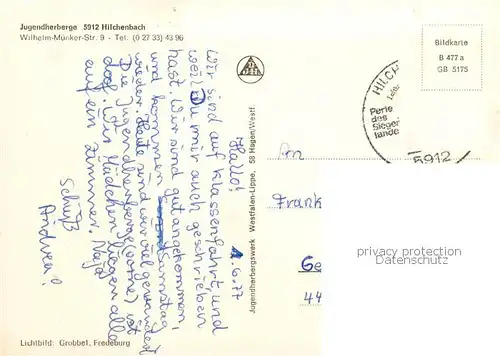 Jugendherberge 5912 Hilchenbach
Wilhelm-Münker-Str. 9 - Tel. (0 27 33) 43 96
Bildkarte
B 477 a
GB 5175
HILCH
Perle
des
Sieger
lande
5912
1.6.77
Hallo!
Wir sind auf Klassenfahrt, und
weil Du mir auch geschrieben
hast. Wir sind gut angekommen,
und kommen Samstag
wieder. Heute sind wir viel gewandert
Die Jugendherberge ist
doof. Wir Mädchen liegen alle
auf ein Zimmer. Naja
Schüß
Andrea!
Jugendherbergswerk Westfalen-Lippe, 58 Hagen/Westf.
An
Frank
Ge
44
privacy protection
watermark
Lichtbild: Grobbel, Fredeburg